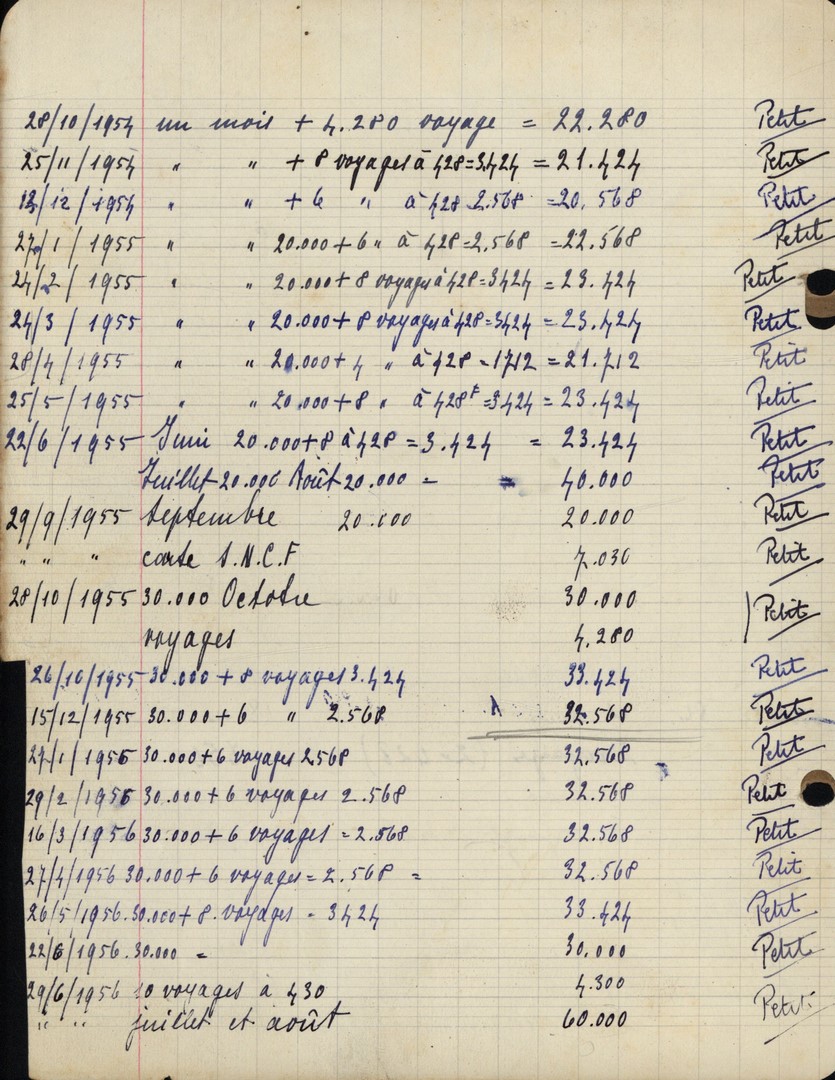 28/10/1954 un mois + 4.280 voyage = 22.280 Petit
25/11/1954 " " + 8 voyages à 428=3.424 = 21.424 Petit
13/12/1954 " " + 6 " à 428 2.568 =20.568 Petit
27/1/1955 " " 20.000+6 " à 428=2.568 =22.568 Petit
24/2/1955 " " 20.000+8 voyages à 428=3424 = 23.424 Petit
24/3/1955 " " 20.000+8 voyages à 428=3424 = 23.424 Petit
28/4/1955 " " 20.000+4 " à 428 =1712 = 21.712 Petit
25/5/1955 " " 20.000+8 " à 428F =3424 = 23.424 Petit
22/6/1955 Juin 20.000+8 à 428 = 3.424 = 23.424 Petit
Juillet 20.000 Août 20.000 = = 40.000 Petit
29/9/1955 Septembre 20.000 20.000 Petit
" " " carte S.N.C.F 7.030 Petit
28/10/1955 30.000 Octobre 30.000 Petit
voyages 4.280
26/10/1955 30.000 + 8 voyages 3.424 33.424 Petit
15/12/1955 30.000+6 " 2.568 32.568 Petit
27/1/1956 30.000+6 voyages 2568 32.568 Petit
29/2/1956 30.000+6 voyages 2.568 32.568 Petit
16/3/1956 30.000+6 voyages = 2.568 32.568 Petit
27/4/1956 30.000+6 voyages = 2.568 = 32.568 Petit
26/5/1956. 30.000+8. voyages = 3424 33.424 Petit
22/6/1956. 30.000 = 30.000 Petit
29/6/1956 10 voyages à 430 4.300 Petit
" " juillet et août 60.000